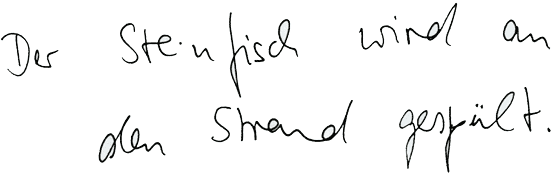 Der Steinfisch wird an
den Strand gespült.